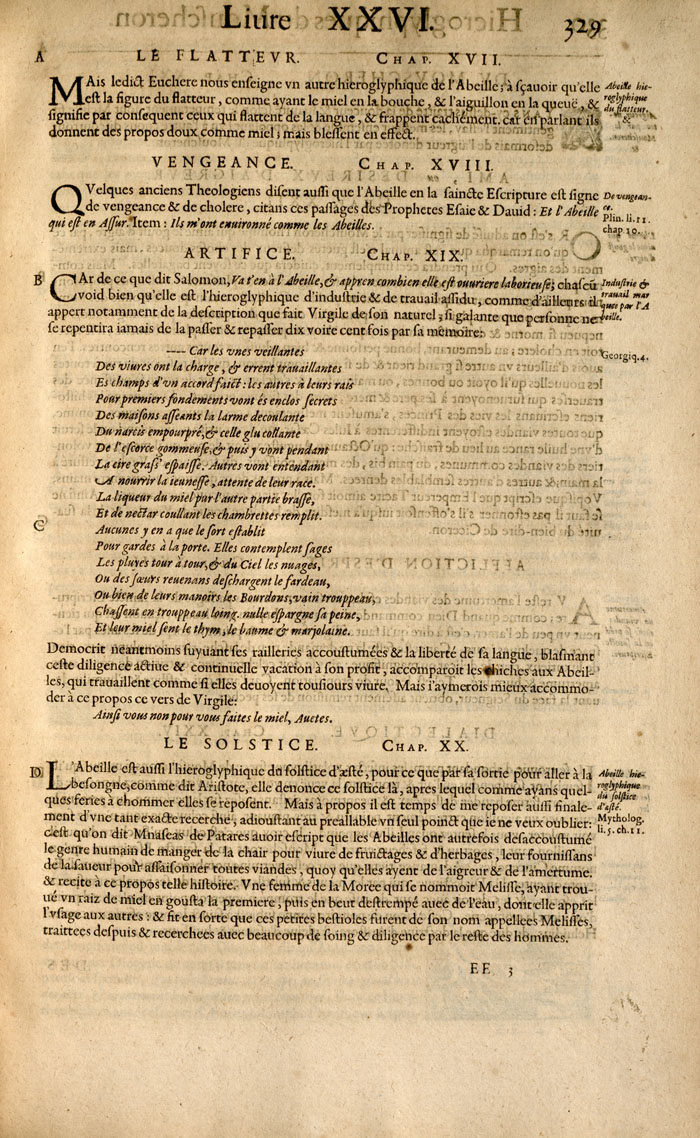 Liure XXVI. 329
A LE FLATTEVR. CHAP. XVII.
MAis ledict Euchere nous enseigne vn autre hieroglyphique de l'Abeille; à sçauoir qu'elle
est la figure du flatteur, comme ayant le miel en la bouche, & l'aiguillon en la queuë, &
signifie par consequent ceux qui flattent de la langue, & frappent cachément. car en parlant ils
donnent des propos doux comme miel; mais blessent en effect.
Abeille hie-
roglyphique
du flatteur.
VENGEANCE. CHAP. XVIII.
QVelques anciens Theologiens disent aussi que l'Abeille en la saincte Escripture est signe
de vengeance & de cholere, citans ces passages des Prophetes Esaie & Dauid: Et l'Abeille
qui est en Assur. Item: Ils m'ont enuironné comme les Abeilles.
De vengean-
ce.
Plin. li. 11.
chap 10.
ARTIFICE. CHAP. XIX.
B CAr de ce que dit Salomon, Va t'en à l'Abeille, & appren combien elle est ouuriere laborieuse; chascū
void bien qu'elle est l'hieroglyphique d'industrie & de trauail assidu, comme d'ailleurs il
appert notamment de la description que fait Virgile de son naturel, si galante que personne ne
se repentira iamais de la passer & repasser dix voire cent fois par sa memoire:
Industrie &
trauail mar
ques par l'A
beille.
---- Car les vnes veillantes
Georgiq. 4.
Des viures ont la charge, & errent trauaillantes
Es champs d'vn accord faict: les autres à leurs rais
Pour premiers fondements vont és enclos secrets
Des maisons asseants la larme decoulante
Du narcis empourpré, & celle glu collante
De l'escorce gommeuse, & puis y vont pendant
La cire grass' espaisse. Autres vont entendant
A nourrir la ieunesse, attente de leur race.
La liqueur du miel par l'autre partie brasse,
Et de nectar coullant les chambrettes remplit.
C Aucunes y en a que le sort establit
Pour gardes à la porte. Elles contemplent sages
Les pluyes tour à tour, & du Ciel les nuages,
Ou des sœurs reuenans deschargent le fardeau,
Ou bien de leurs manoirs les Bourdons, vain trouppeau,
Chassent en trouppeau loing. nulle espargne sa peine,
Et leur miel sent le thym, le baume & marjolaine.
Democrit neantmoins suyuant ses railleries accoustumées & la liberté de sa langue, blasmant
ceste diligence actiue & continuelle vacation à son profit, accomparoit les chiches aux Abeil-
les, qui trauaillent comme si elles deuoyent tousiours viure. Mais i'aymerois mieux accommo-
der à ce propos ce vers de Virgile:
Ainsi vous non pour vous faites le miel, Auetes.
LE SOLSTICE. CHAP. XX.
D L'Abeille est aussi l'hieroglyphique du solstice d'æsté, pour ce que par sa sortie pour aller à la
besongne, comme dit Aristote, elle denonce ce solstice là, apres lequel comme ayans quel-
ques feries à chommer elles se reposent. Mais à propos il est temps de me reposer aussi finale-
ment d'vne tant exacte recerche, adioustant au préallable vn seul poinct que ie ne veux oublier:
c'est qu'on dit Mnaseas de Patares auoir escript que les Abeilles ont autrefois desaccoustumé
le genre humain de manger de la chair pour viure de fruictages & d'herbages, leur fournissans
de la saueur pour assaisonner toutes viandes, quoy qu'elles ayent de l'aigreur & de l'amertume.
& recite à ce propos telle histoire. Vne femme de la Moree qui se nommoit Melisse, ayant trou-
ué vn raiz de miel en gousta la premiere, puis en beut destrempé auec de l'eau, dont elle apprit
l'vsage aux autres: & fit en sorte que ces petites bestioles furent de son nom appellees Melisses,
traittees despuis & recerchees auec beaucoup de soing & diligence par le reste des hommes.
Abeille hie-
roglyphique
du solstice
d'esté.
Mytholog.
li. 5. ch. 11.
EE 3